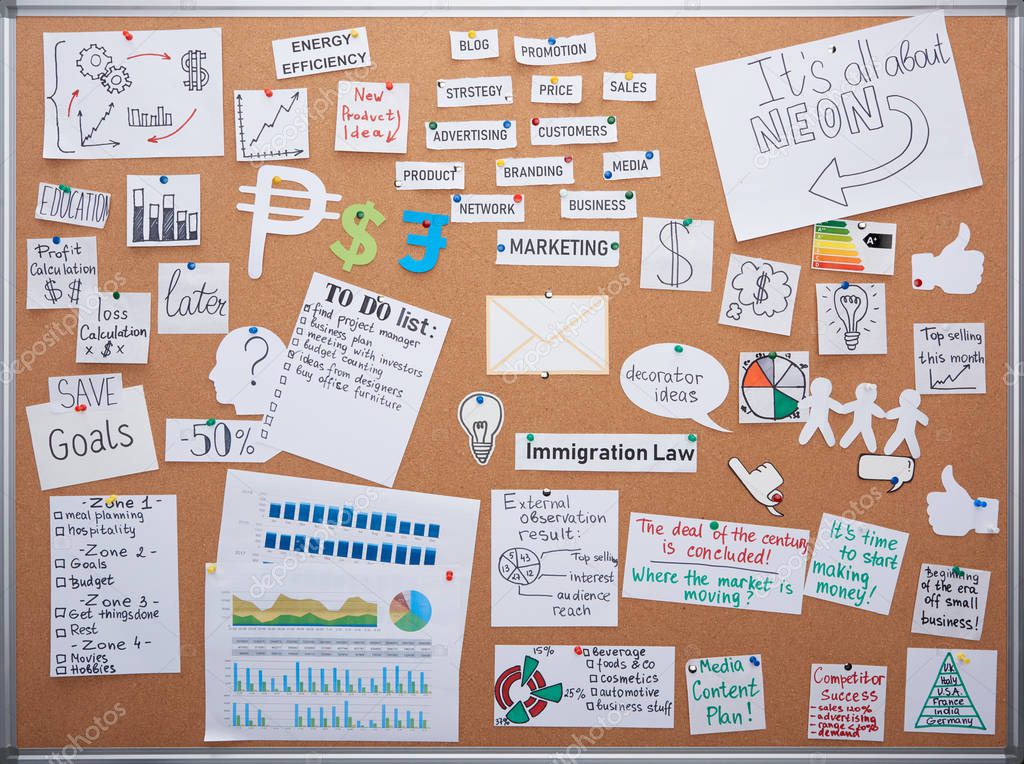 ENERGY
EFFICIENCY
BLOG
PROMOTION
STRSTEGY
PRICE
SALES
ADVERTISING
CUSTOMERS
PRODUCT
BRANDING
MEDIA
NETWORK
BUSINESS
MARKETING
New
Product
Idea
It's all about
NEON
A+
EDUCATION
Profit
Calculation
$ $
loss
Calculation
x $ x
later
TO DO list:
find project manager
business plan
meeting with investors
budget counting
ideas from designers
buy office furniture
?
$
$
$
$
SAVE
Goals
-50%
decorator
ideas
Top selling
this month
Immigration Law
- Zone 1 -
meal planning
hospitality
- Zone 2 -
Goals
Budget
- Zone 3 -
Get thingsdone
Rest
- Zone 4 -
Movies
Hobbies
External
observation
result:
5 43
13 27 12
Top selling
interest
audience
reach
The deal of the century
is concluded!
Where the market is
moving?
It's time
to start
making
money!
Beginning
of the era
off small
business!
15%
25%
37%
beverage
foods & co
cosmetics
automotive
business stuff
Media
Content
Plan!
Competitor
Success
- sales 120%
- advertising
- range <20%
- demand
U.K
Italy
U.S.A.
France
India
Germany
depositphotos